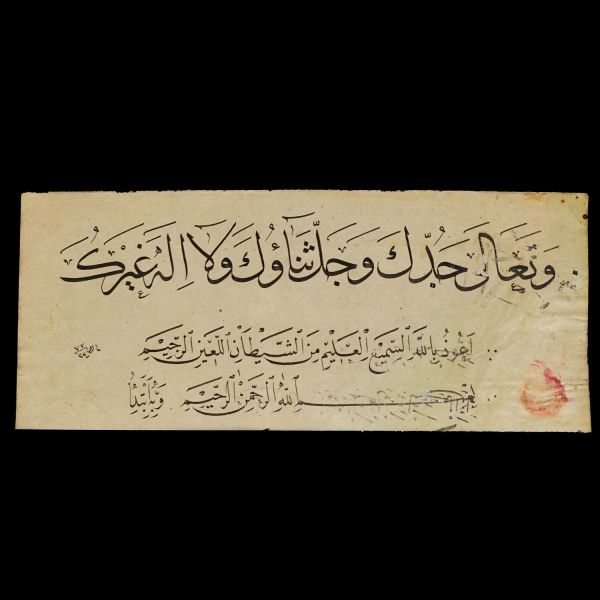 وَتَعَالَى جَدُّكَ وَجَلَّ ثَنَاؤُكَ وَلَا اِلَهَ غَيْرُكَ
اَعُوذُ بِاللّٰهِ السَّمِيعِ الْعَلِيمِ مِنَ الشَّيْطَانِ اللَّعِينِ الرَّجِيمِ
بِسْمِ اللّٰهِ الرَّحْمٰنِ الرَّحِيمِ وَبِهِ